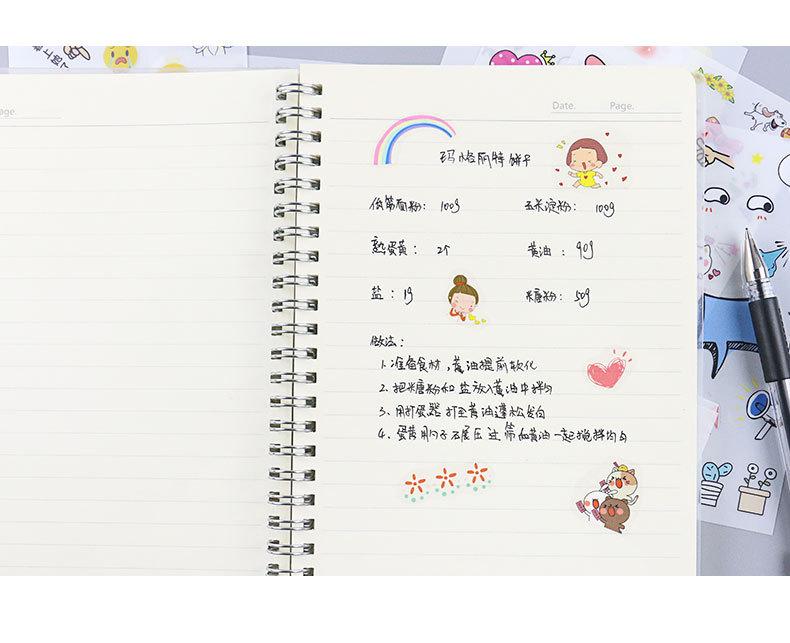 age.
Date. Page.
玛格丽特饼干
低筋面粉：100g 玉米淀粉：100g
熟蛋黄：2个 黄油：90g
盐：1g 米唐粉：50g
做法：
1.准备食材，黄油提前软化
2、把米唐粉和盐放入黄油中拌匀
3、用打蛋器打至黄油蓬松发白
4、蛋黄用勺子压过筛和黄油一起搅拌均匀